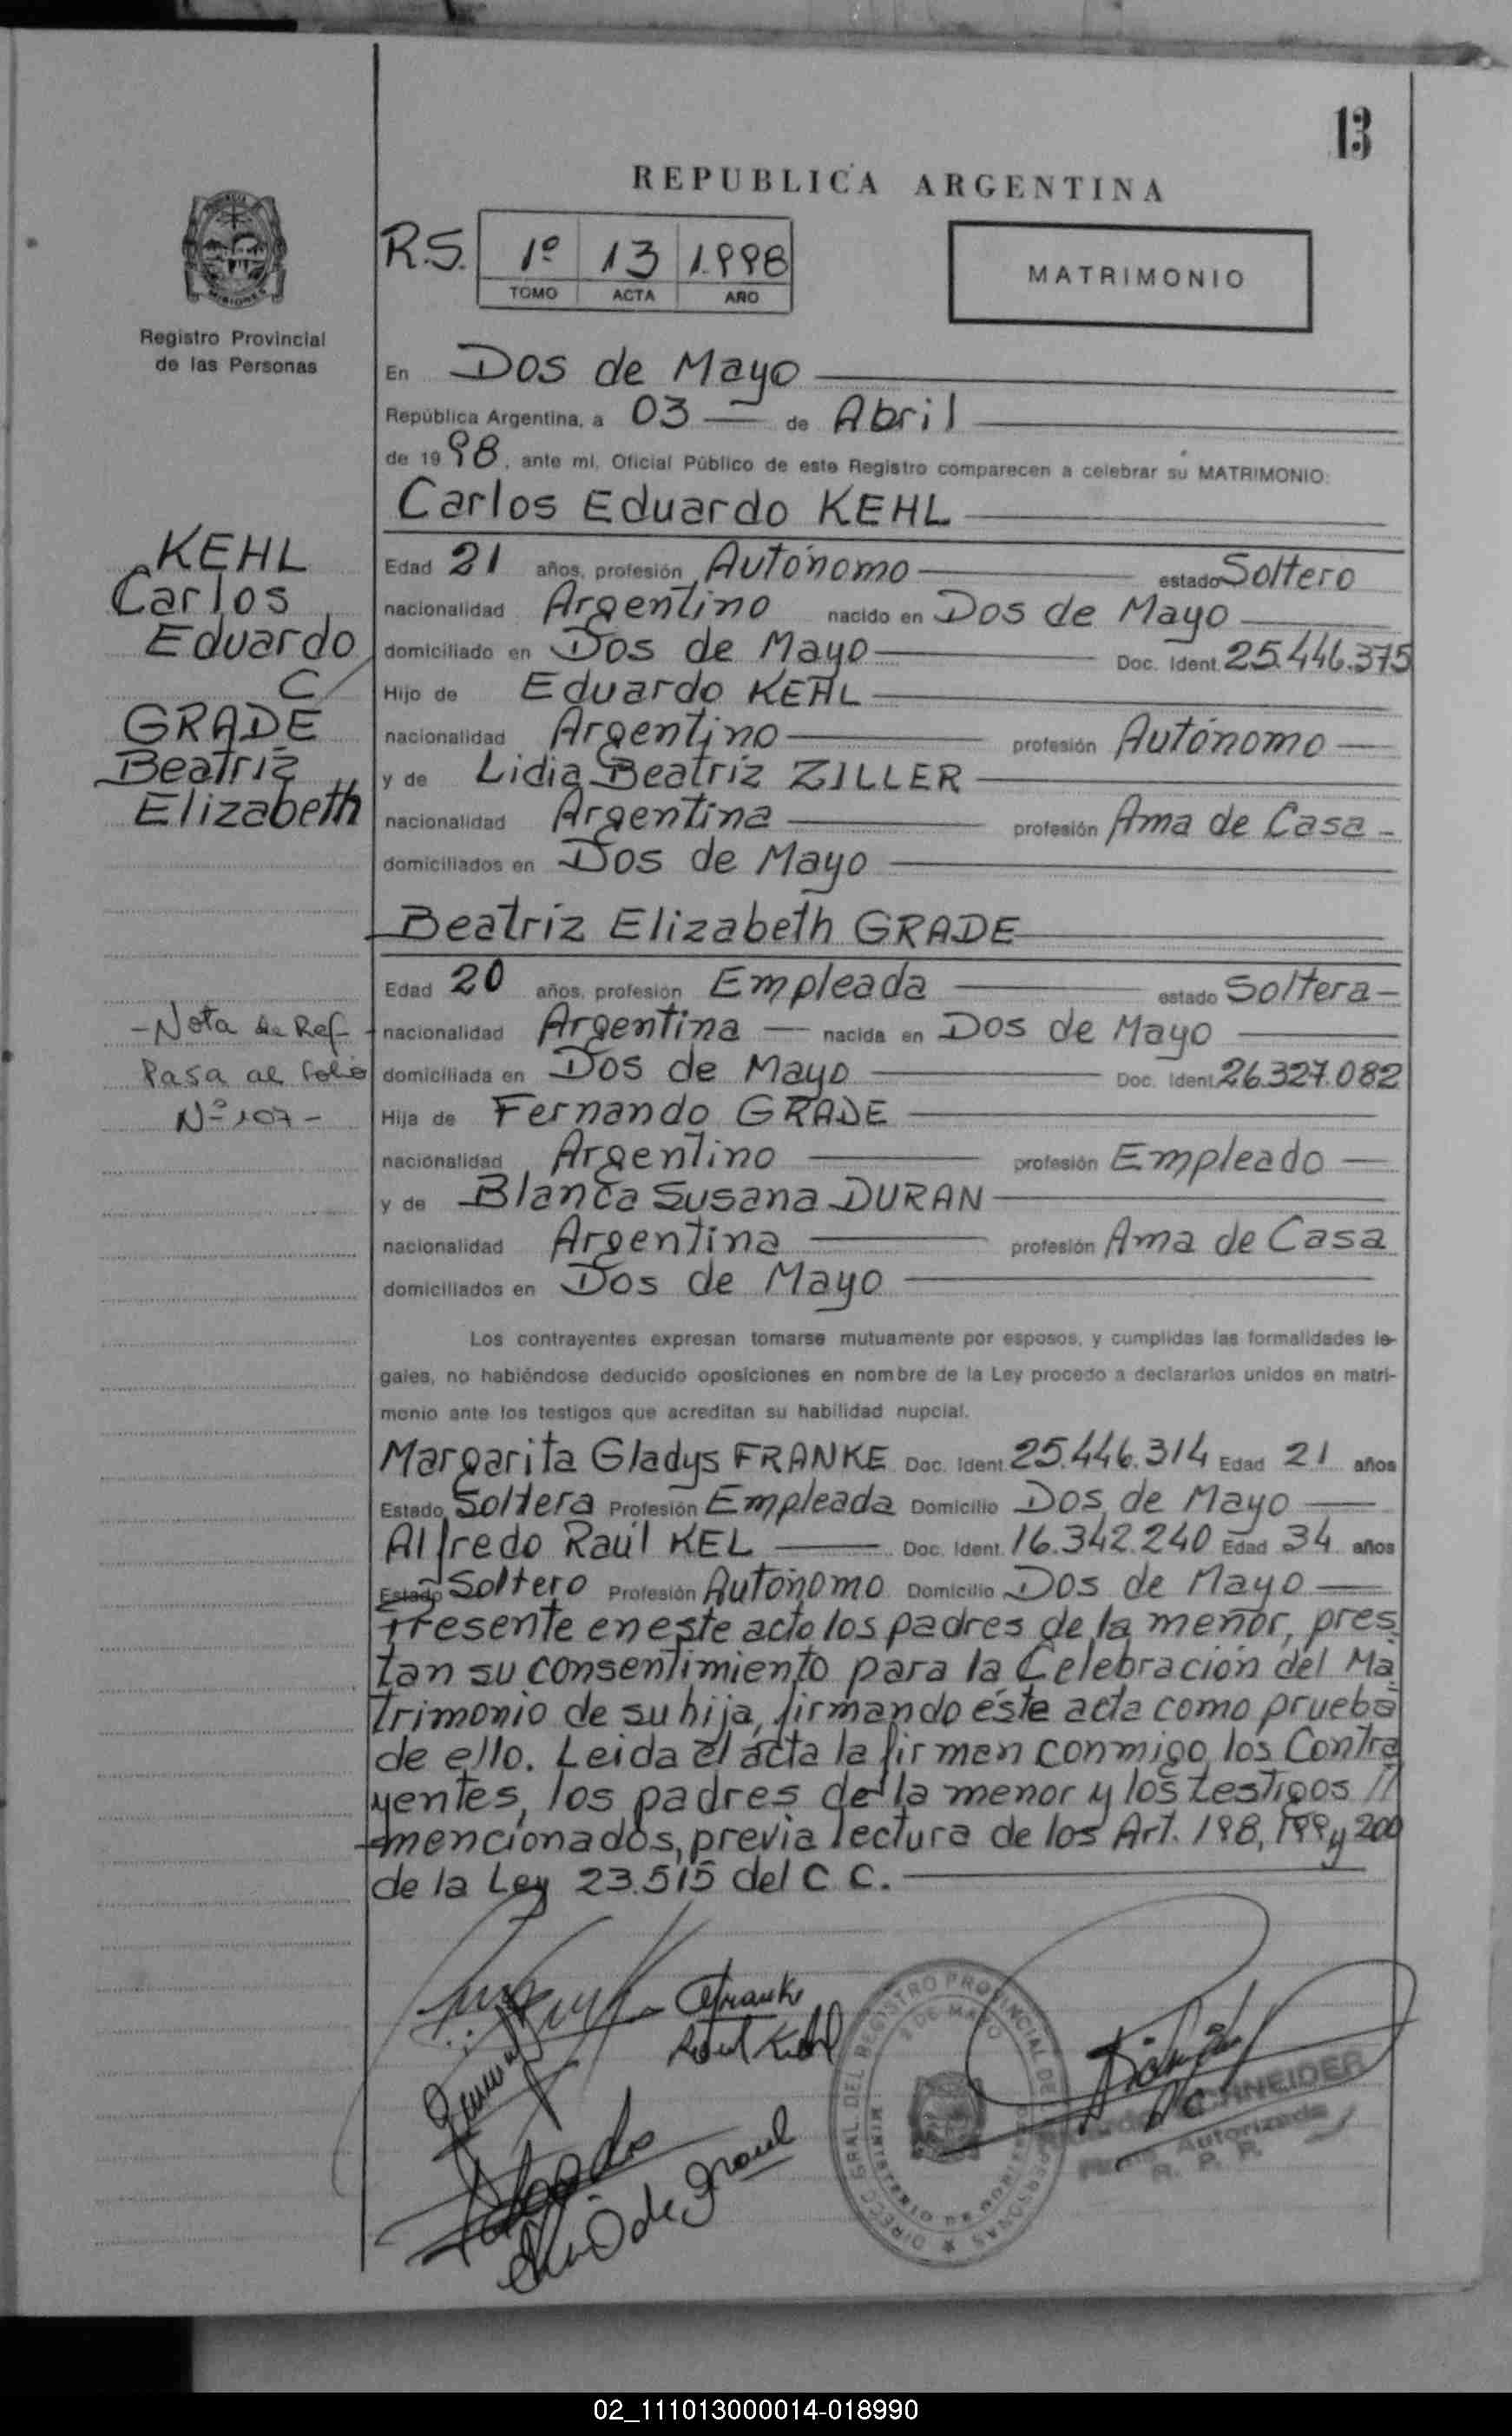 13
REPUBLICA ARGENTINA
R.S. 1º 13 1.998
TOMO ACTA AÑO
MATRIMONIO
Registro Provincial
de las Personas
En Dos de Mayo
República Argentina, a 03 de Abril
de 1998, ante mí, Oficial Público de este Registro comparecen a celebrar su MATRIMONIO:
Carlos Eduardo KEHL
KEHL
Carlos
Eduardo
C/
GRADE
Beatriz
Elizabeth
Edad 21 años, profesión Autónomo estado Soltero
nacionalidad Argentino nacido en Dos de Mayo
domiciliado en Dos de Mayo Doc. Ident. 25.446.375
Hijo de Eduardo KEHL
nacionalidad Argentino profesión Autónomo
y de Lidia Beatriz ZILLER
nacionalidad Argentina profesión Ama de Casa
domiciliados en Dos de Mayo
Beatriz Elizabeth GRADE
Edad 20 años, profesión Empleada estado Soltera
nacionalidad Argentina nacida en Dos de Mayo
domiciliada en Dos de Mayo Doc. Ident. 26.327.082
Hija de Fernando GRADE
nacionalidad Argentino profesión Empleado
y de Blanca Susana DURAN
nacionalidad Argentina profesión Ama de Casa
domiciliados en Dos de Mayo
- Nota de Ref -
Pasa al folio
Nº 107 -
Los contrayentes expresan tomarse mutuamente por esposos, y cumplidas las formalidades le-
gales, no habiéndose deducido oposiciones en nombre de la Ley procedo a declararlos unidos en matri-
monio ante los testigos que acreditan su habilidad nupcial.
Margarita Gladys FRANKE Doc. Ident. 25.446.314 Edad 21 años
Estado Soltera Profesión Empleada Domicilio Dos de Mayo
Alfredo Raúl KEL Doc. Ident. 16.342.240 Edad 34 años
Estado Soltero Profesión Autónomo Domicilio Dos de Mayo
Presente en este acto los padres de la menor, pres
tan su consentimiento para la Celebración del Ma
trimonio de su hija, firmando éste acta como prueba
de ello. Leida el acta la firman conmigo los Contra
yentes, los padres de la menor y los testigos //
mencionados, previa lectura de los Art. 198, 199 y 200
de la Ley 23.515 del C.C.
Franke
Raul Kehl
DIREC. GRAL. DEL REGISTRO PROVINCIAL DE PERSONAS
2 DE MAYO
SCHNEIDER
Firma Autorizada
R. P. P.
02_111013000014-018990